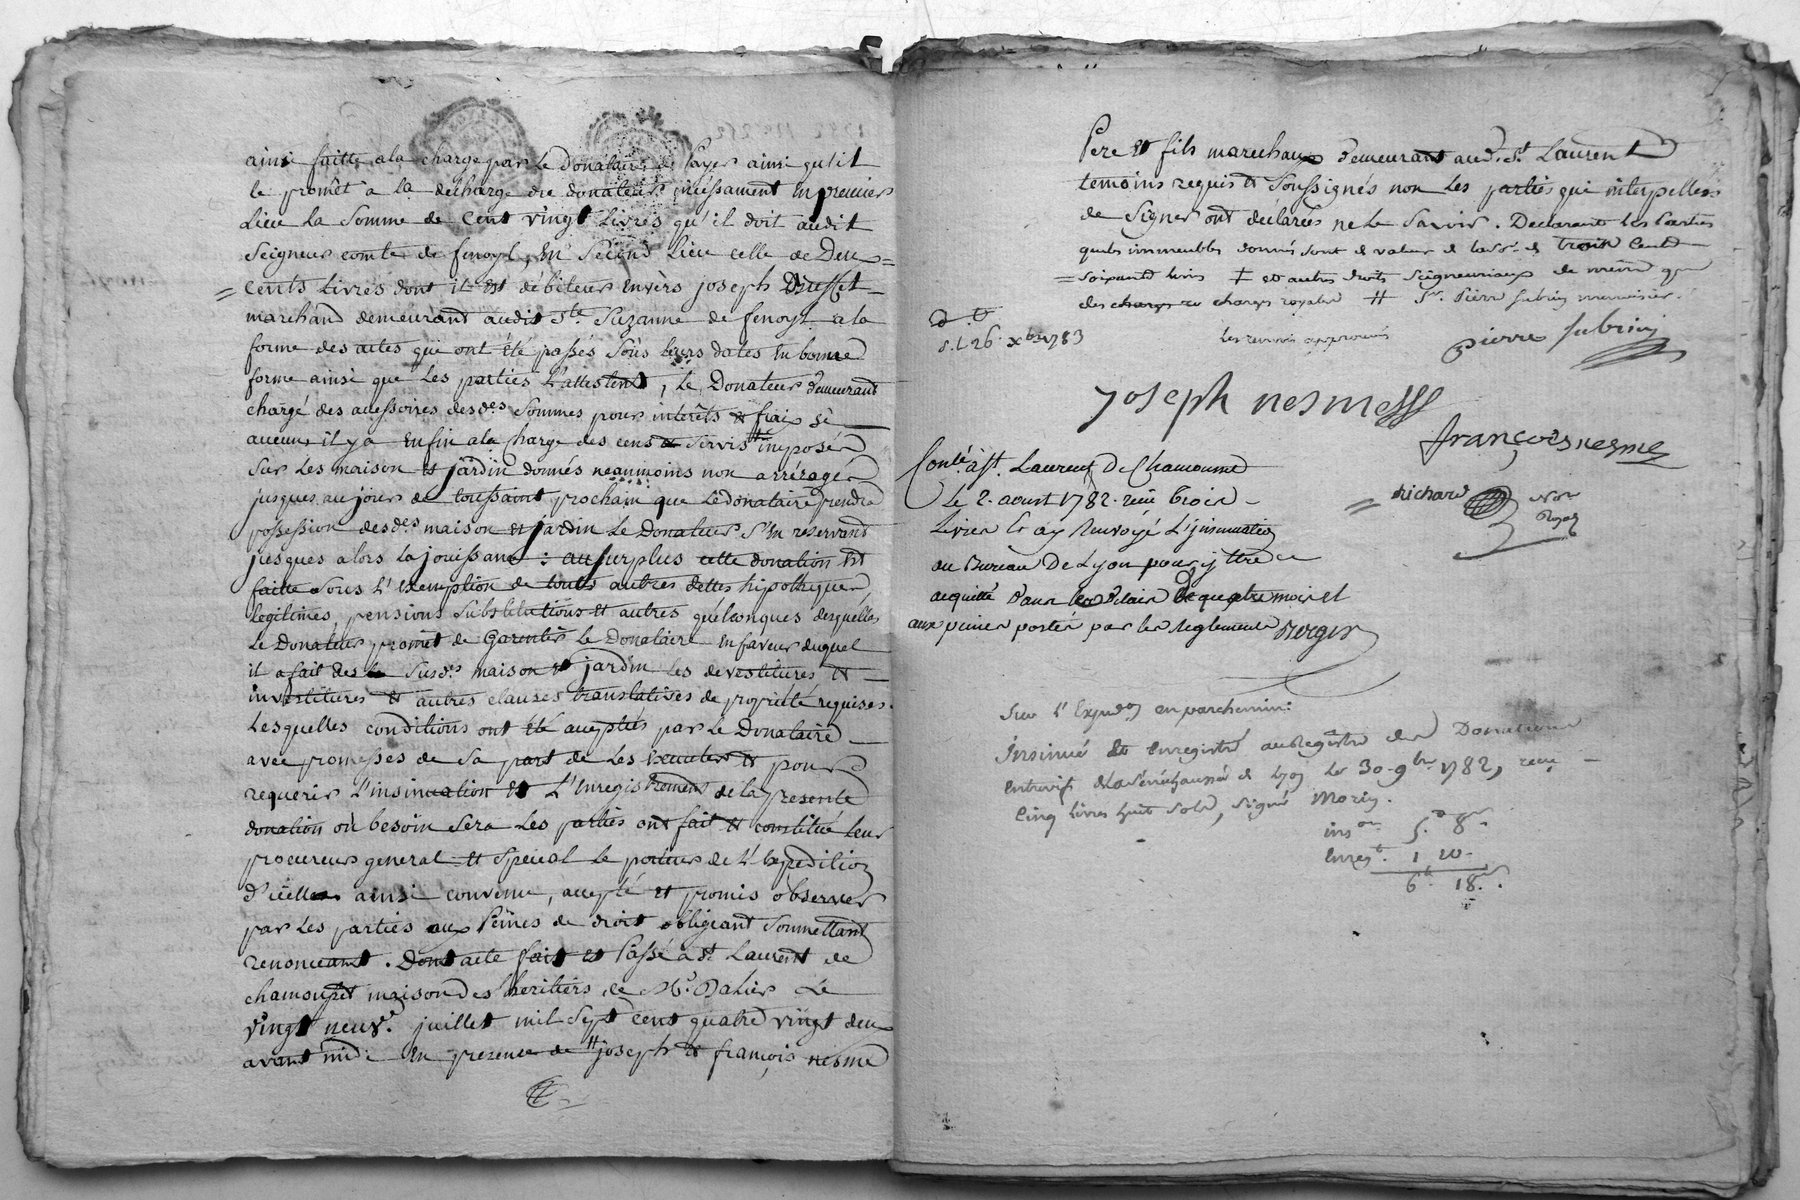 ainsi faitte ala charge par Le Donataire de Payer ainsi qu'il
le promêt a la decharge du donateur incéssament En premier
Lieu la Somme de Cent vingt Livres qu'il doit audit
Seigneur comte de fenoyl, En Sécond Lieu celle de Deux
Cents Livres dont il Est débiteur Envèrs joseph
marchand demeurant audit Ste Suzanne de fenoyl a la
forme des actes qui ont été passés Sous leurs dates En bonne
forme ainsi que Les parties L'attestent, Le Donateur demeurant
chargé des accessoires desdes Sommes pour interêts & fraix si
aucuns il y a Enfin ala Charge des cens & Servis imposés
Sur Les maison & jardin donnés neanmoins non arréragés
jusques au jour de toussaint prochain que Le donataire prendra
possession desdes maison et jardin Le Donateur S'En réservant
jusques alors la jouissance : au surplus cette donation Est
faitte Sous L'Exemption de touts autres dettes hipotheques
Legitimes, pensions Substitutions et autres quelconques desquelles
Le Donateur promêt de Garentir Le Donataire En faveur duquel
il a fait des Susdes maison et jardin les devestitures &
investitures & autres clauses translatives de propriété requises.
Lesquelles conditions ont Eté acceptées par Le Donataire
avec promesses de Sa part de Les Executer & pour
requerir L'insinuation Et L'Enregistrement de la présente
donation où besoin Sera Les parties ont fait & constitué leur
procureur general & Spécial Le porteur de L'Expedition
D'icelles ainsi convenu, accepté et promis observer
par Les parties aux Peines de droit obligeant Soumettant
renonceant. Dont acte fait et Passé a St Laurent de
chamousset maison des heritiers de Mr. Dalier Le
vingt neuf juillet mil Sept Cent quatre vingt deux
avant midi En presence de # joseph & françois nesme
Pere et fils marechaux demeurant aud. St Laurent
temoins requis & Soussignés non Les parties qui interpellées
de Signer ont déclarées ne Le Savoir. Declarant Les Parties
quels immeubles donnés sont de valeur de la Sé de Trois Cent
Soixante livres ‡ et autres droits Seigneuriaux de même que
des charges royales # Sr. Pierre fabrin menuisier.
Les renvois approuvés
pierre fabrin
26 xbre 1783
joseph nesme
françois nesme
richard Nore Royal
Conlé. à St. Laurent De Chamousset
Le 2. aoust 1782. reçu trois
Livres Et ay Renvoyé L'insinuation
au Bureau De Lyon pour y Etre
acquitté Dans Le Délai De quatre mois et
aux peines portées par les Reglements Berger
Sur L'Expedon en parchemin:
Insinué & Enregistré au Registre des Donations
Entrevifs de la Sénéchaussée de Lyon Le 30. 9bre. 1782, reçu
Cinq livres huit Sols, Signé Morin.
inson. 5. 8.
Enregt. 1 10
6. 18.